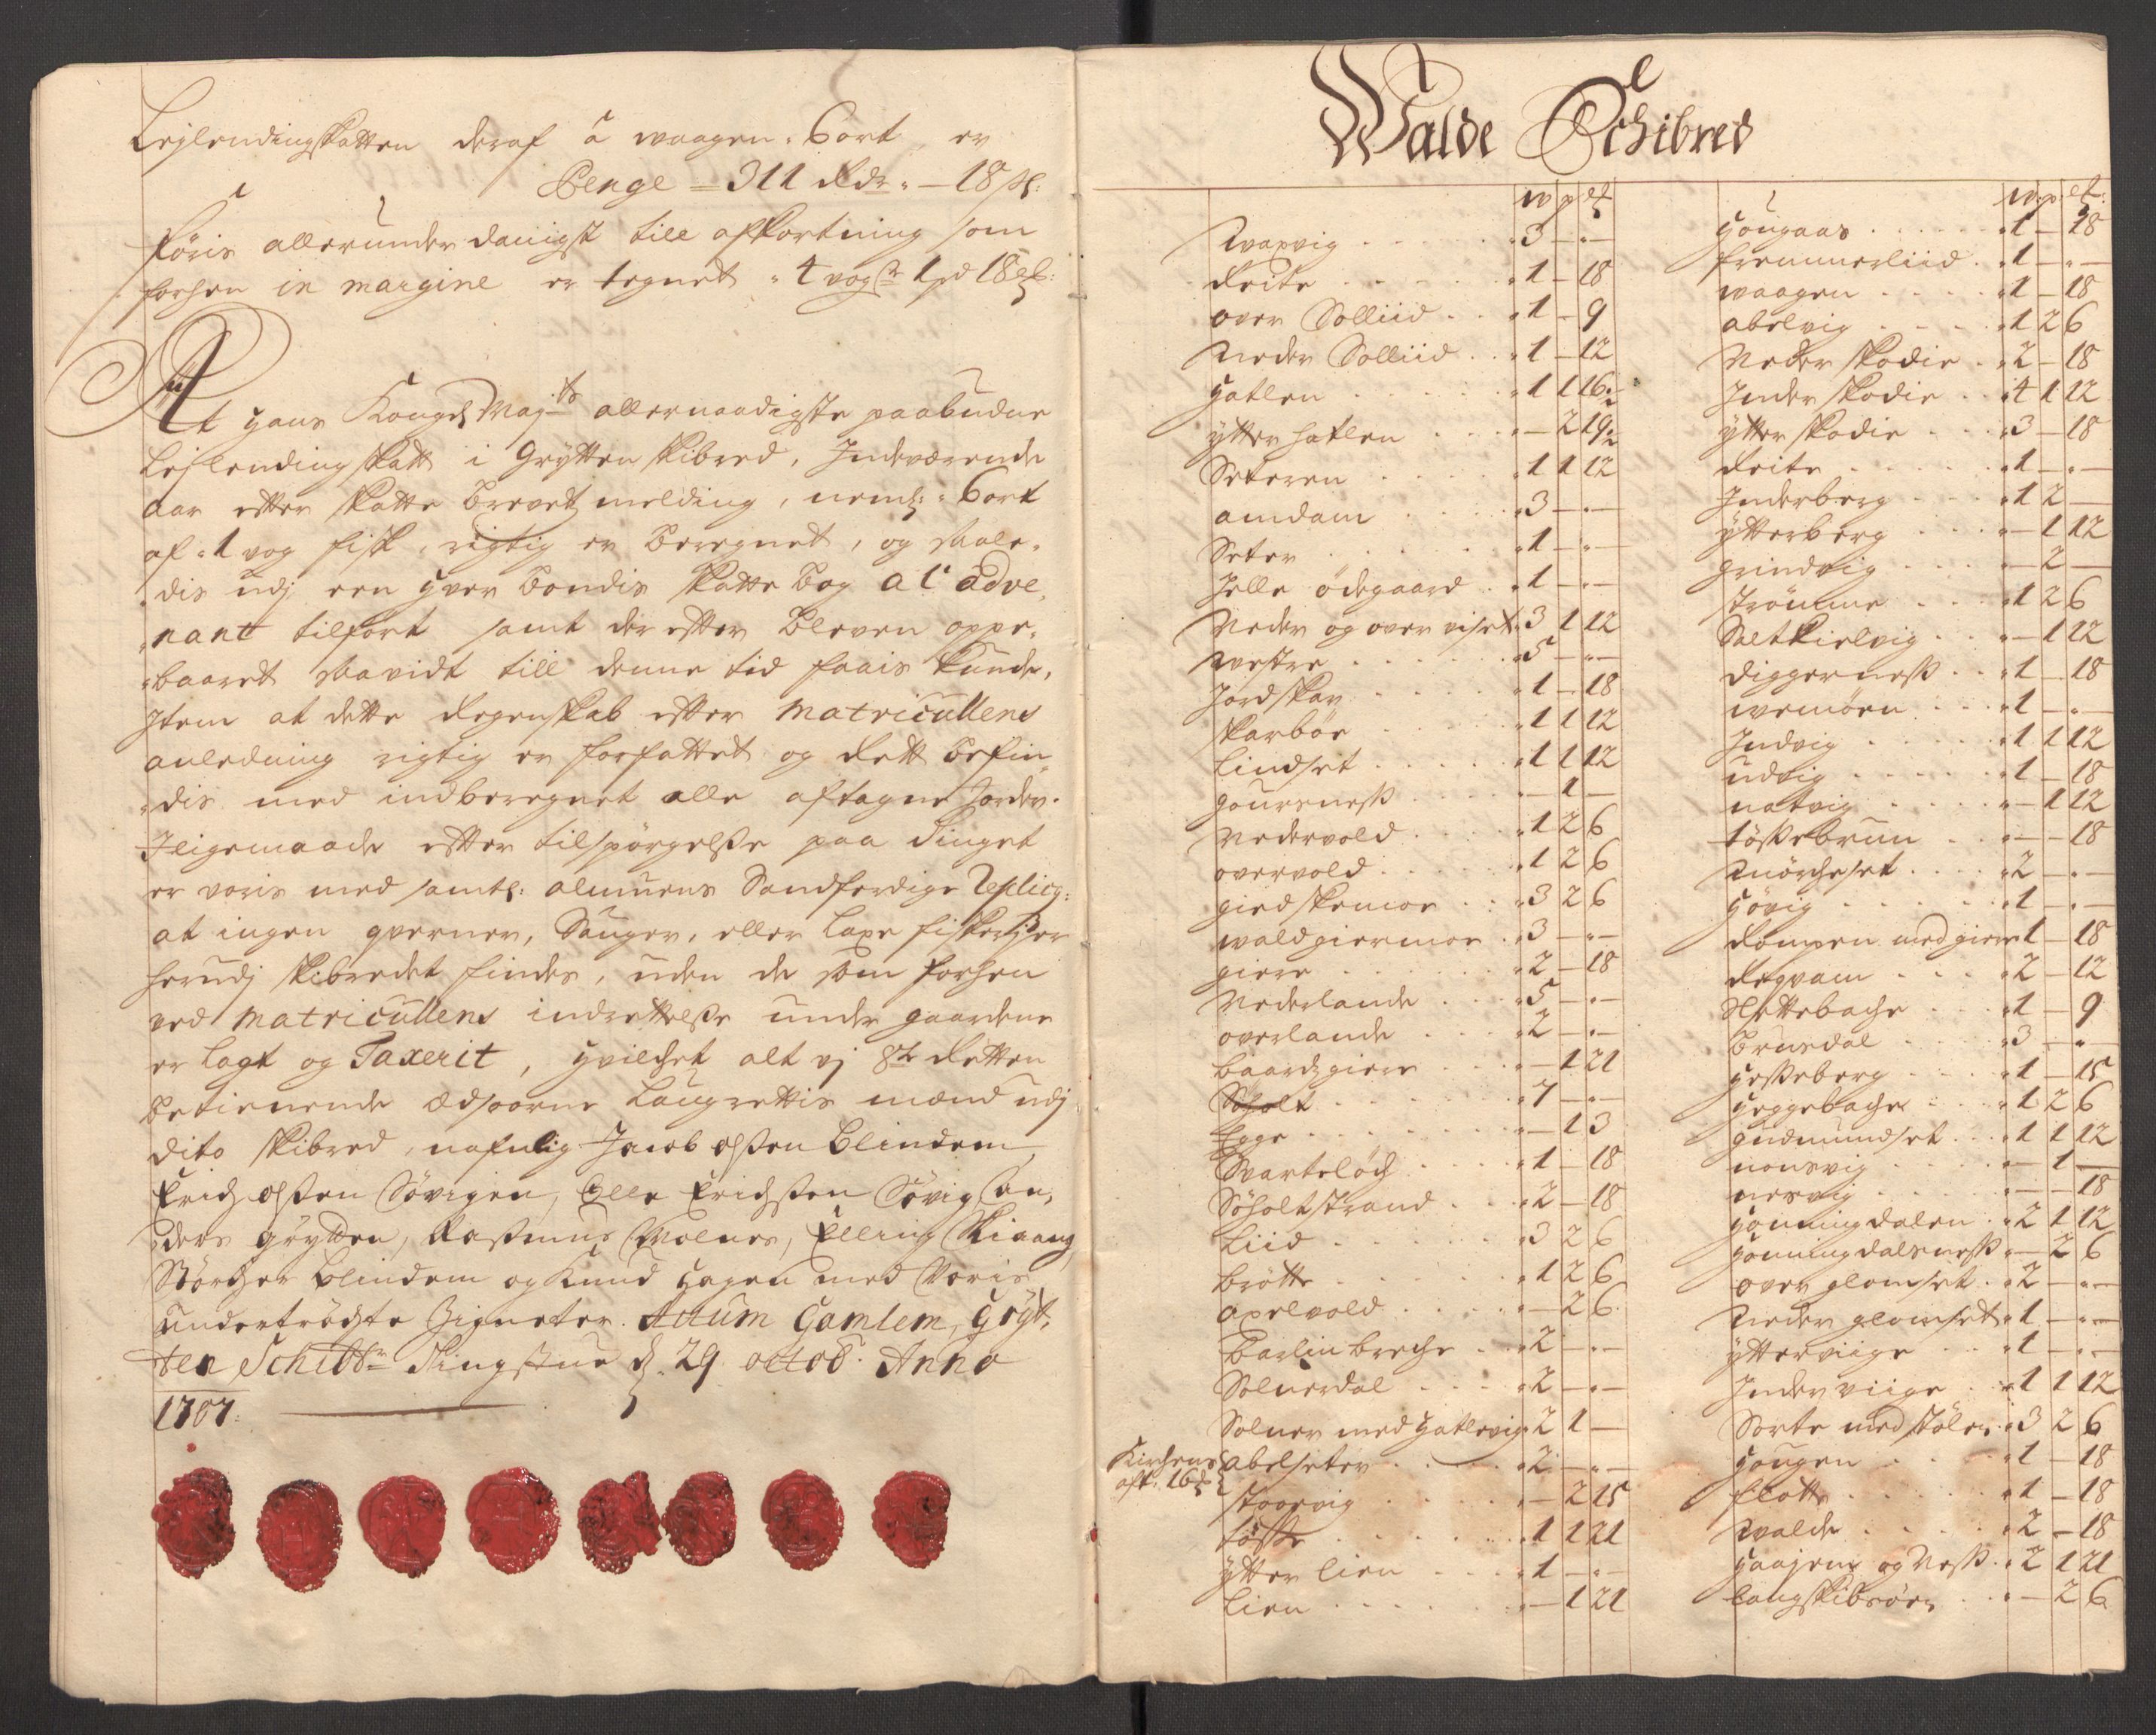 Leylendingskatten deraf â waagen 6 ort er
Penge = 311 Rdr - 18 sk:
föris allerunderdanigst till afkortning som
forhen in margine er tegnet 4 vog 1 pd 18 
At hans Kongl Maj:ts allernaadigste paabudne
Leylending skatt i Grytten skibred, Indeværende
aar efter skatte brevets melding, neml: 6 ort
af 1 vog fisk, rigtig er beregnet, og 
dis udj een hver bondis skatte bog al' adve
nant tilfört samt der efter bleven oppe
baaret saavidt till denne tid faais kunde,
Item at dette Regenskab efter Matricullens
anledning rigtig er forfattet og Rett befin
dis med indberegnet alle aftagne Jorder.
Iligemaade efter tilspörgelse paa Tinget
er voris med samtl: almuens Sandferdige Replicq:
at ingen qverner, Sauger, eller laxe fiskerier
herudj skibredet findes, uden de som forhen
ved Matricullens indrettelse under gaardene
er lagt og Taxerit, hvilchet alt vj 8te Retten
betienende Edsoorne Laugrettis mænd udj
dito skibred, nafnlig Jacob olssen Blindem,
Erich olssen Sövigen, Elle Erichssen Sövig an
ders Grytten, Rasmus Molnes, Elling Kiaang
Störcher Blindem og Knud Hagen med Voris
undertrögte Zigneter. Actum Gamlem, Gryt
ten Schibbr Tingstue d. 29 octob. Anno
1707.
Walde Schibred
w p 
Waxvig 3 - -
Reite 1 - 18
over Solliid 1 - 9
Neder Solliid 1 - 12
Hatlen 1 1 16
ytter Hatlen - 2 19
Seteren 1 1 12
amdam 3 - -
Seter 1 - -
Jelle ödegaard 1 - -
Neder og over viset 3 1 12
Westre 5 - -
Jordskar 1 - 18
Skarbör 1 1 12
Lindset 1 1 12
Goursness - 1 -
Nedervold 1 2 6
overvold 1 2 6
giedskemoe 3 2 6
waldgiermoe 3 - -
giere 2 - 18
Nederlande 5 - -
overlande 2 - -
baardzgiere - 1 21
Söholt 7 - -
Egge - 1 3
Svartelöch 1 - 18
Söholtstrand 2 - 18
Liid 3 2 6
brötte 1 2 6
apelvold - 2 6
Barlinbreche 2 - -
Solnerdal 2 - -
Solnör med Hatlevig 2 1 -
Kirchens
aft: 16
abelseter 2 - -
stoorvig - 2 15
töste 1 1 21
ytter lien 1 - -
Lien - 1 21
w. p. 
Hougaas 1 - 18
fremmerliid 1 - -
waagen 1 - 18
abelvig 1 2 6
Neder skodie 2 - 18
Inder skodie 4 1 12
ytter skodie 3 - 18
Reite 1 - -
Inderberg 1 2 -
ytterberg - 1 12
grindvig - 2 -
strömme 1 2 6
Saltkielvig - 1 12
diggerness 1 - 18
wemöen 1 - -
Indvig 1 1 12
udvig 1 - 18
natvig - 1 12
tössebrun - - 18
Mörcheset 2 - -
Hövig 1 - -
Rompen med giere 1 - 18
Regvam 2 - 12
Slettebache 1 - 9
brusdal 3 - -
Hesseberg 1 - 15
Heggebache 1 2 6
gudmundset 1 1 12
nonsvig - 1 -
nesvig - - 18
Honningdalen 2 1 12
Honningdalsness - 2 6
over glomset 2 - -
Neder glomset 1 - -
ytterviige 1 - -
Inder viige 1 1 12
Sorte med stöle 3 2 6
Hougen 1 - 18
flotte 1 - 18
Walde 2 - 18
Haajem og Ness 2 1 21
langskibsöen - 2 6